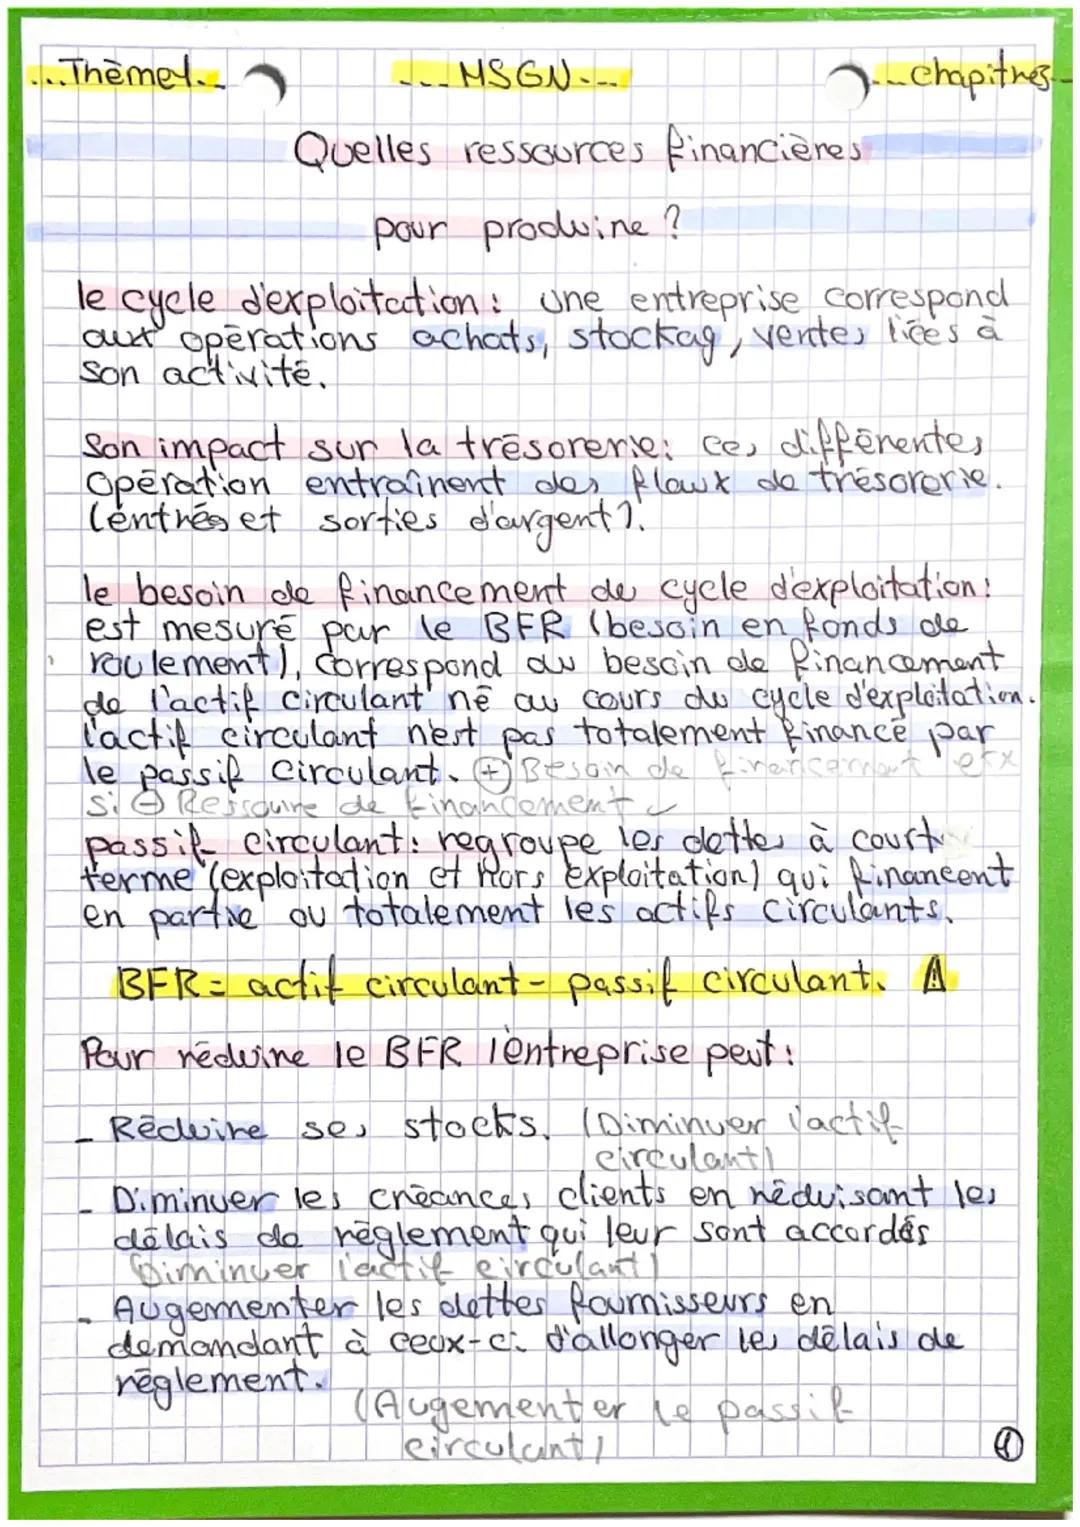 ...Thème1...
... MSGN...
...chapitre3...
Quelles ressources financières
pour produire ?
le cycle d'exploitation : une entreprise correspond
aux opérations achats, stockag, ventes liées à
son activité.
Son impact sur la trésorerie : ces différentes
Opération entraînent des flaux de trésorerie.
(entrées et sorties d'argent).
le besoin de financement de cycle d'exploitation :
est mesuré par le BFR (besoin en fonds de
roulement), correspond au besoin de financement
de l'actif circulant né au cours du cycle d'exploitation.
l'actif circulant n'est pas totalement financé par
le passif circulant. (+) Besoin de financement
si (-) Ressource de financement
passif circulant : regroupe les dettes à court
terme (exploitation et hors exploitation) qui financent
en partie ou totalement les actifs circulants.
BFR = actif circulant - passif circulant. ⚠
Pour réduire le BFR l'entreprise peut :
- Réduire ses stocks. (Diminuer l'actif
circulant)
- Diminuer les créances clients en réduisant les
délais de règlement qui leur sont accordés
(Diminuer l'actif circulant)
- Augementer les dettes fournisseurs en
demandant à ceux-ci d'allonger les délais de
règlement.
(Augementer le passif
circulant)
1